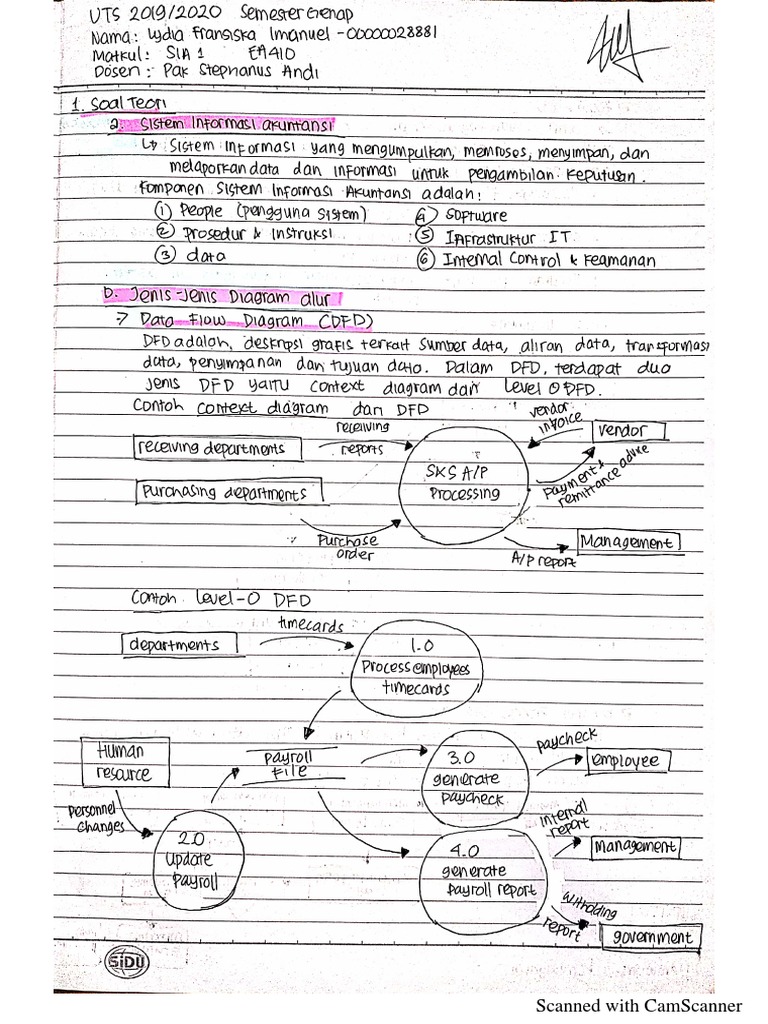 UTS 2019/2020 Semester Genap
Nama: Lydia Fransiska Imanuel - 00000028881
Matkul: SIA 1 EA410
Dosen: Pak Stephanus Andi
1. Soal Teori
a. Sistem Informasi akuntansi
↳ Sistem informasi yang mengumpulkan, memroses, menyimpan, dan
melaporkan data dan informasi untuk pengambilan keputusan.
Komponen Sistem Informasi Akuntansi adalah:
① People (pengguna sistem) ④ Software
② Prosedur & Instruksi ⑤ Infrastruktur IT
③ data ⑥ Internal Control & Keamanan
b. Jenis-Jenis Diagram alur
⇒ Data Flow Diagram (DFD)
DFD adalah, deskripsi grafis terkait sumber data, aliran data, transformasi
data, penyimpanan dan tujuan data. Dalam DFD, terdapat dua
Jenis DFD yaitu context diagram dan Level 0 DFD.
Contoh context diagram dari DFD
receiving departments
receiving
reports
vendor
invoice
vendor
SKS A/P
Processing
Payment &
remittance advice
Purchasing departments
Purchase
order
Management
A/P report
Contoh Level-0 DFD
departments
timecards
1.0
Process employees
timecards
Human
resource
payroll
File
3.0
generate
paycheck
paycheck
employee
personnel
changes
2.0
Update
Payroll
4.0
generate
payroll report
internal
report
management
witholding
report
government
SiDU
Scanned with CamScanner